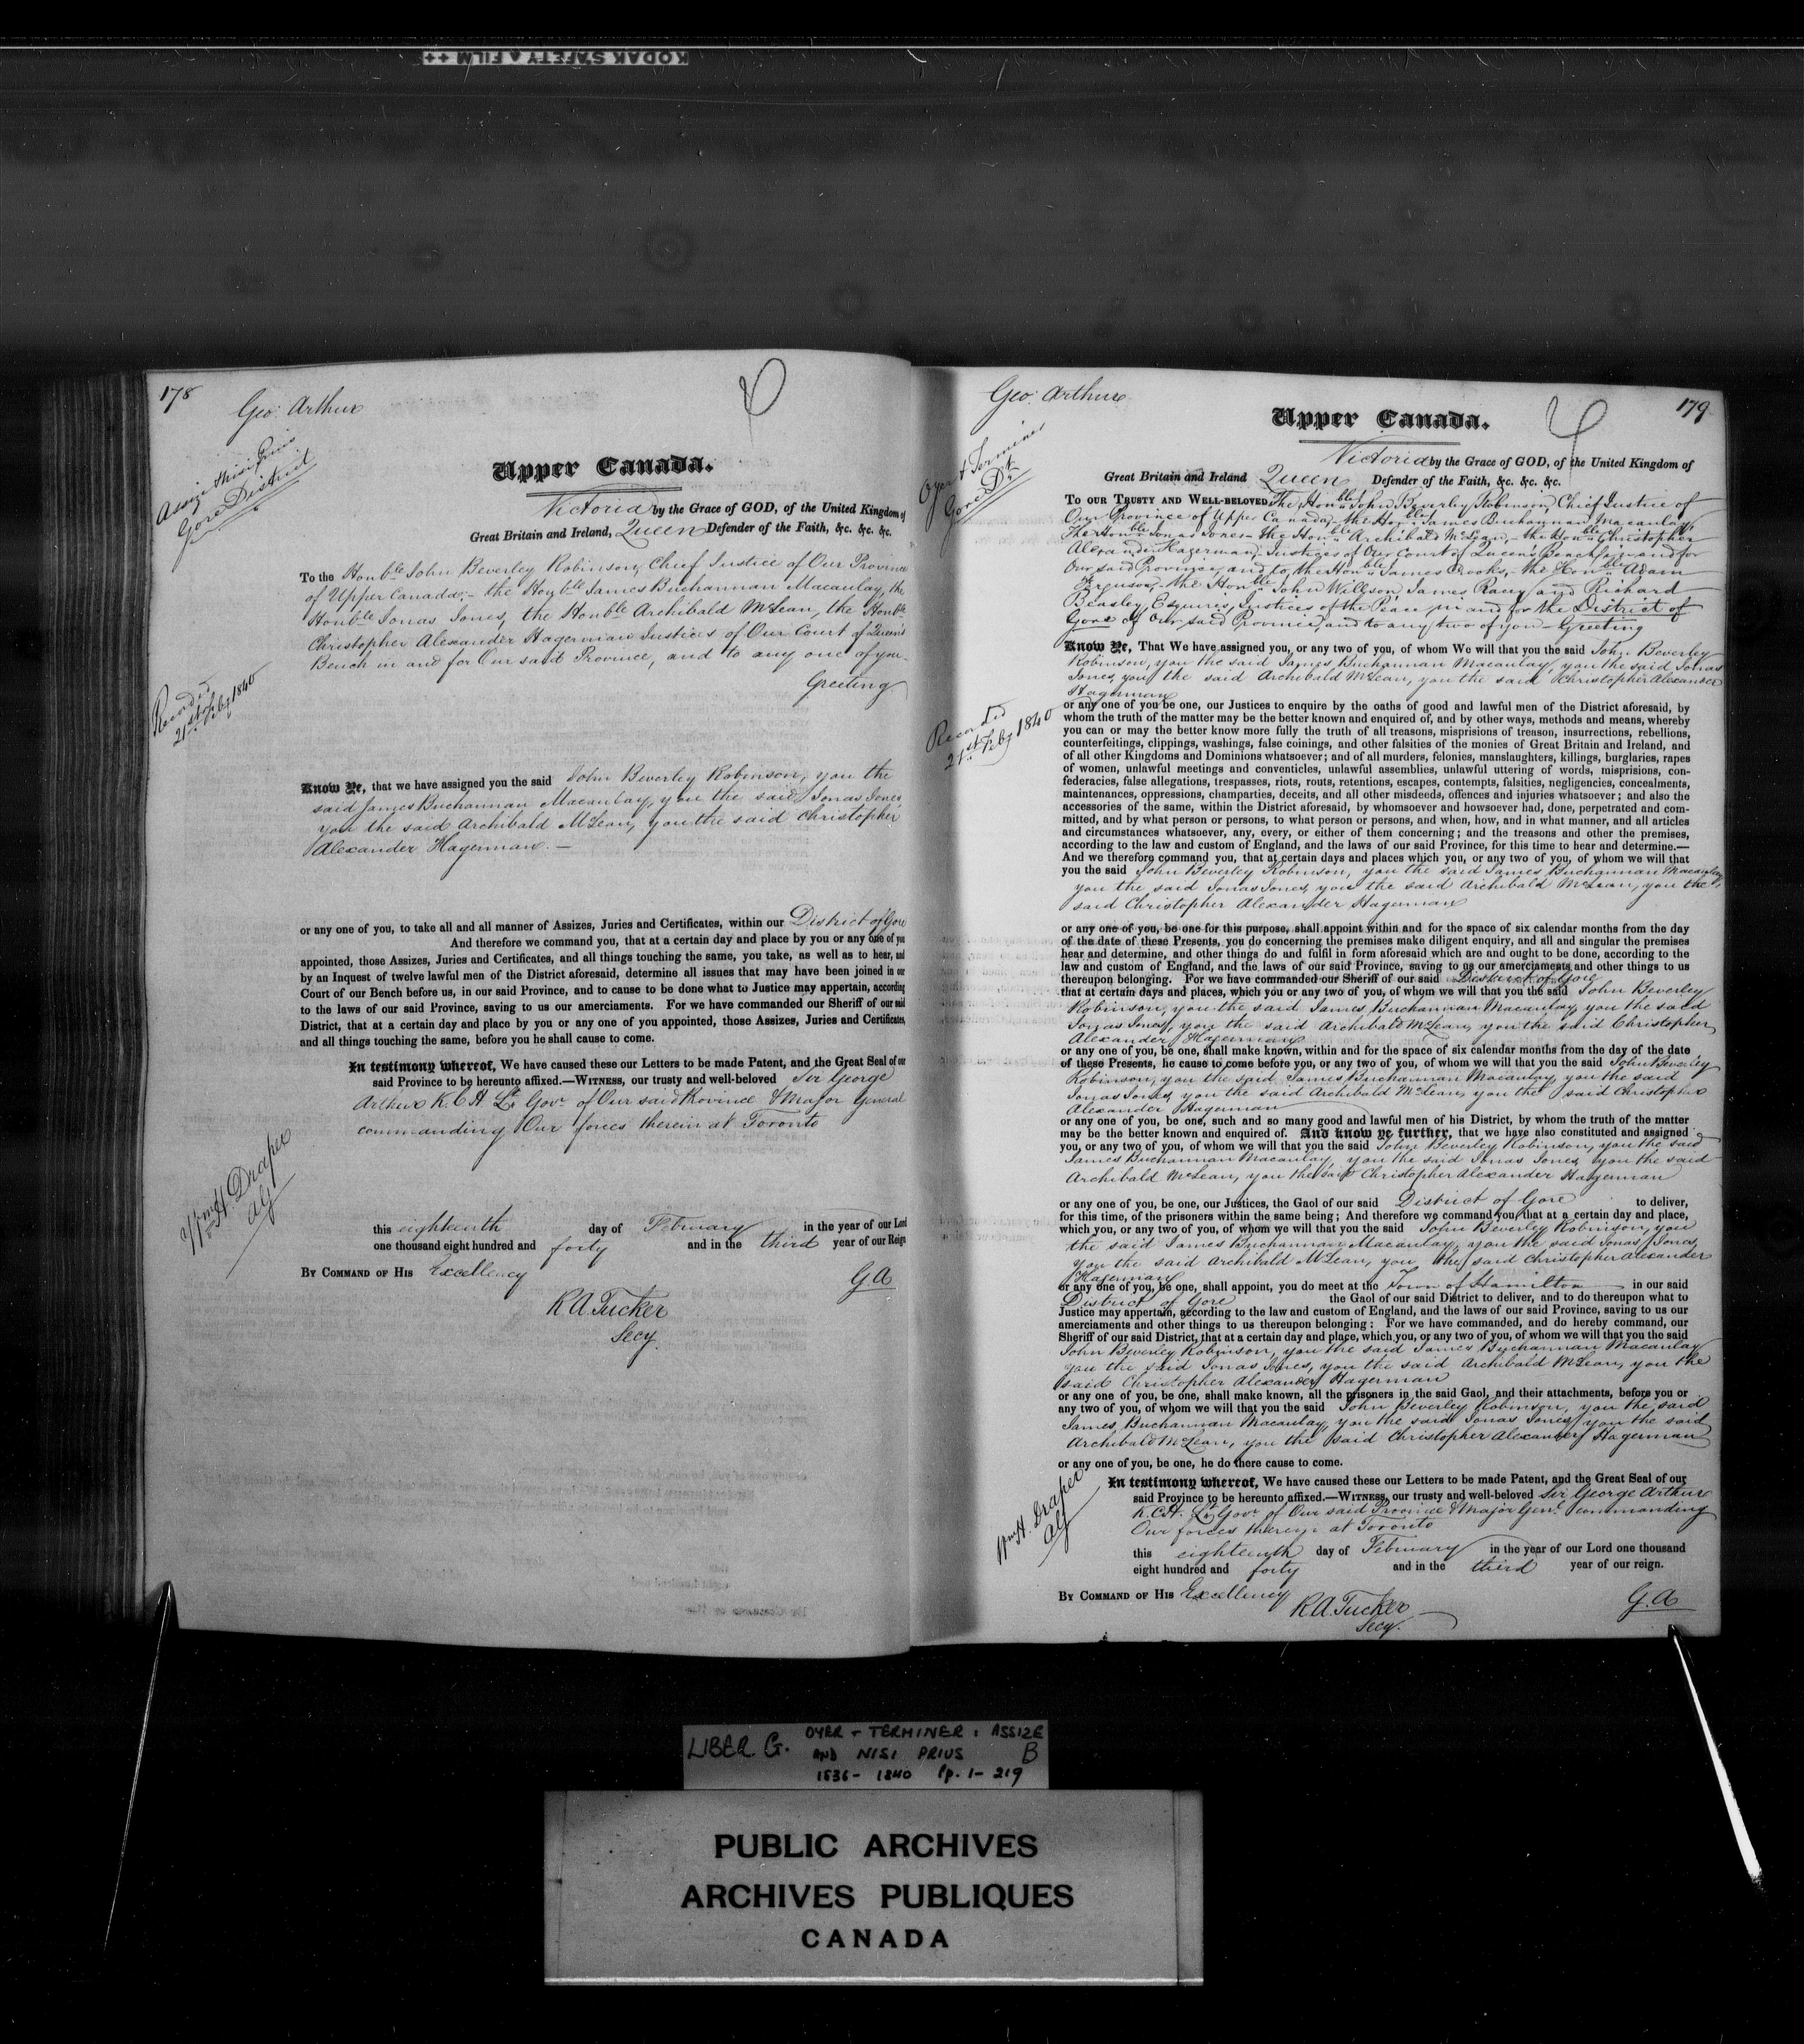 KODAK SAFETY A FILM ++
178
Geo: Arthur
Assize & Nisi Prius
Gore District
Upper Canada.
Victoria by the Grace of GOD, of the United Kingdom of
Great Britain and Ireland, Queen Defender of the Faith, &c. &c. &c.
To the Honble John Beverley Robinson, Chief Justice of Our Province
of Upper Canada,- the Honble James Buchannan Macaulay, the
Honble Jonas Jones, the Honble Archibald McLean, the Honble
Christopher Alexander Hagerman Justices of Our Court of Queen's
Bench in and for Our said Province, and to any one of you-
Greeting
Recorded
21st Feby 1840
Know Ye, that we have assigned you the said John Beverley Robinson, you the
said James Buchannan Macaulay, you the said Jonas Jones,
you the said Archibald McLean, you the said Christopher
Alexander Hagerman. —
or any one of you, to take all and all manner of Assizes, Juries and Certificates, within our District of Gore
And therefore we command you, that at a certain day and place by you or any one of you
appointed, those Assizes, Juries and Certificates, and all things touching the same, you take, as well as to hear, and
by an Inquest of twelve lawful men of the District aforesaid, determine all issues that may have been joined in our
Court of our Bench before us, in our said Province, and to cause to be done what to Justice may appertain, according
to the laws of our said Province, saving to us our amerciaments. For we have commanded our Sheriff of our said
District, that at a certain day and place by you or any one of you appointed, those Assizes, Juries and Certificates,
and all things touching the same, before you he shall cause to come.
In testimony whereof, We have caused these our Letters to be made Patent, and the Great Seal of our
said Province to be hereunto affixed.—WITNESS, our trusty and well-beloved Sir George
Arthur K.C.H. Lt Govr of Our said Province & Major General
commanding Our forces therein at Toronto
Wm H. Draper
AG
this eighteenth day of February in the year of our Lord
one thousand eight hundred and forty and in the third year of our Reign
BY COMMAND OF HIS Excellency
G A
R.A. Tucker
Secy.
179
Geo: Arthur
Oyer & Terminer
Gore Dt
Upper Canada.
Victoria by the Grace of GOD, of the United Kingdom of
Great Britain and Ireland Queen Defender of the Faith, &c. &c. &c.
TO OUR TRUSTY AND WELL-BELOVED The Honble John Beverley Robinson, Chief Justice of
Our Province of Upper Canada,- the Honble James Buchannan Macaulay,
The Honble Jonas Jones- the Honble Archibald McLean,- the Honble Christopher
Alexander Hagerman, Justices of Our Court of Queen's Bench in and for
Our said Province, and to, the Honble James Crooks,- the Honble Adam
Fergusson,- the Honble John Willson, James Racey and Richard
Beasley, Esquires, Justices of the Peace, in and for the District of
Gore of Our said Province, and to any two of you - Greeting
Know Ye, That We have assigned you, or any two of you, of whom We will that you the said John Beverley
Robinson, you the said James Buchannan Macaulay, you the said Jonas
Jones, you the said Archibald McLean, you the said Christopher Alexander
Hagerman
Recorded
21st Feby 1840
or any one of you be one, our Justices to enquire by the oaths of good and lawful men of the District aforesaid, by
whom the truth of the matter may be the better known and enquired of, and by other ways, methods and means, whereby
you can or may the better know more fully the truth of all treasons, misprisions of treason, insurrections, rebellions,
counterfeitings, clippings, washings, false coinings, and other falsities of the monies of Great Britain and Ireland, and
of all other Kingdoms and Dominions whatsoever; and of all murders, felonies, manslaughters, killings, burglaries, rapes
of women, unlawful meetings and conventicles, unlawful assemblies, unlawful uttering of words, misprisions, con-
federacies, false allegations, trespasses, riots, routs, retentions, escapes, contempts, falsities, negligencies, concealments,
maintenances, oppressions, champarties, deceits, and all other misdeeds, offences and injuries whatsoever; and also the
accessories of the same, within the District aforesaid, by whomsoever and howsoever had, done, perpetrated and com-
mitted, and by what person or persons, to what person or persons, and when, how, and in what manner, and all articles
and circumstances whatsoever, any, every, or either of them concerning; and the treasons and other the premises,
according to the law and custom of England, and the laws of our said Province, for this time to hear and determine.—
And we therefore command you, that at certain days and places which you, or any two of you, of whom we will that
you the said John Beverley Robinson, you the said James Buchannan Macaulay,
you the said Jonas Jones, you the said Archibald McLean, you the
said Christopher Alexander Hagerman
or any one of you, be one for this purpose, shall appoint within and for the space of six calendar months from the day
of the date of these Presents, you do concerning the premises make diligent enquiry, and all and singular the premises
hear and determine, and other things do and fulfil in form aforesaid which are and ought to be done, according to the
law and custom of England, and the laws of our said Province, saving to us our amerciaments and other things to us
thereupon belonging. For we have commanded our Sheriff of our said District of Gore
that at certain days and places, which you or any two of you, of whom we will that you the said John Beverley
Robinson, you the said James Buchannan Macaulay, you the said
Jonas Jones, you the said Archibald McLean, you the said Christopher
Alexander Hagerman
or any one of you, be one, shall make known, within and for the space of six calendar months from the day of the date
of these Presents, he cause to come before you, or any two of you, of whom we will that you the said John Beverley
Robinson, you the said James Buchannan Macaulay, you the said
Jonas Jones, you the said Archibald McLean, you the said Christopher
Alexander Hagerman
or any one of you, be one, such and so many good and lawful men of his District, by whom the truth of the matter
may be the better known and enquired of. And know ye further, that we have also constituted and assigned
you, or any two of you, of whom we will that you the said John Beverley Robinson, you the said
James Buchannan Macaulay, you the said Jonas Jones, you the said
Archibald McLean, you the said Christopher Alexander Hagerman
or any one of you, be one, our Justices, the Gaol of our said District of Gore to deliver,
for this time, of the prisoners within the same being; And therefore we command you, that at a certain day and place,
which you, or any two of you, of whom we will that you the said John Beverley Robinson, you
the said James Buchannan Macaulay, you the said Jonas Jones,
you the said Archibald McLean, you the said Christopher Alexander
Hagerman
or any one of you, be one, shall appoint, you do meet at the Town of Hamilton in our said
District of Gore the Gaol of our said District to deliver, and to do thereupon what to
Justice may appertain, according to the law and custom of England, and the laws of our said Province, saving to us our
amerciaments and other things to us thereupon belonging: For we have commanded, and do hereby command, our
Sheriff of our said District, that at a certain day and place, which you, or any two of you, of whom we will that you the said
John Beverley Robinson, you the said James Buchannan Macaulay
you the said Jonas Jones, you the said Archibald McLean, you the
said Christopher Alexander Hagerman
or any one of you, be one, shall make known, all the prisoners in the said Gaol, and their attachments, before you or
any two of you, of whom we will that you the said John Beverley Robinson, you the said
James Buchannan Macaulay, you the said Jonas Jones, you the said
Archibald McLean, you the said Christopher Alexander Hagerman
or any one of you, be one, he do there cause to come.
Wm H. Draper
AG
In testimony whereof, We have caused these our Letters to be made Patent, and the Great Seal of our
said Province to be hereunto affixed.—WITNESS, our trusty and well-beloved Sir George Arthur
K.C.H. Lt Govr of Our said Province & Major Genl commanding
Our forces therein at Toronto
this eighteenth day of February in the year of our Lord one thousand
eight hundred and forty and in the third year of our reign.
BY COMMAND OF HIS Excellency
R.A. Tucker
Secy.
G. A
LIBER G. OYER + TERMINER: ASSIZE
AND NISI PRIUS B
1836- 1840 Pp. 1- 219
PUBLIC ARCHIVES
ARCHIVES PUBLIQUES
CANADA